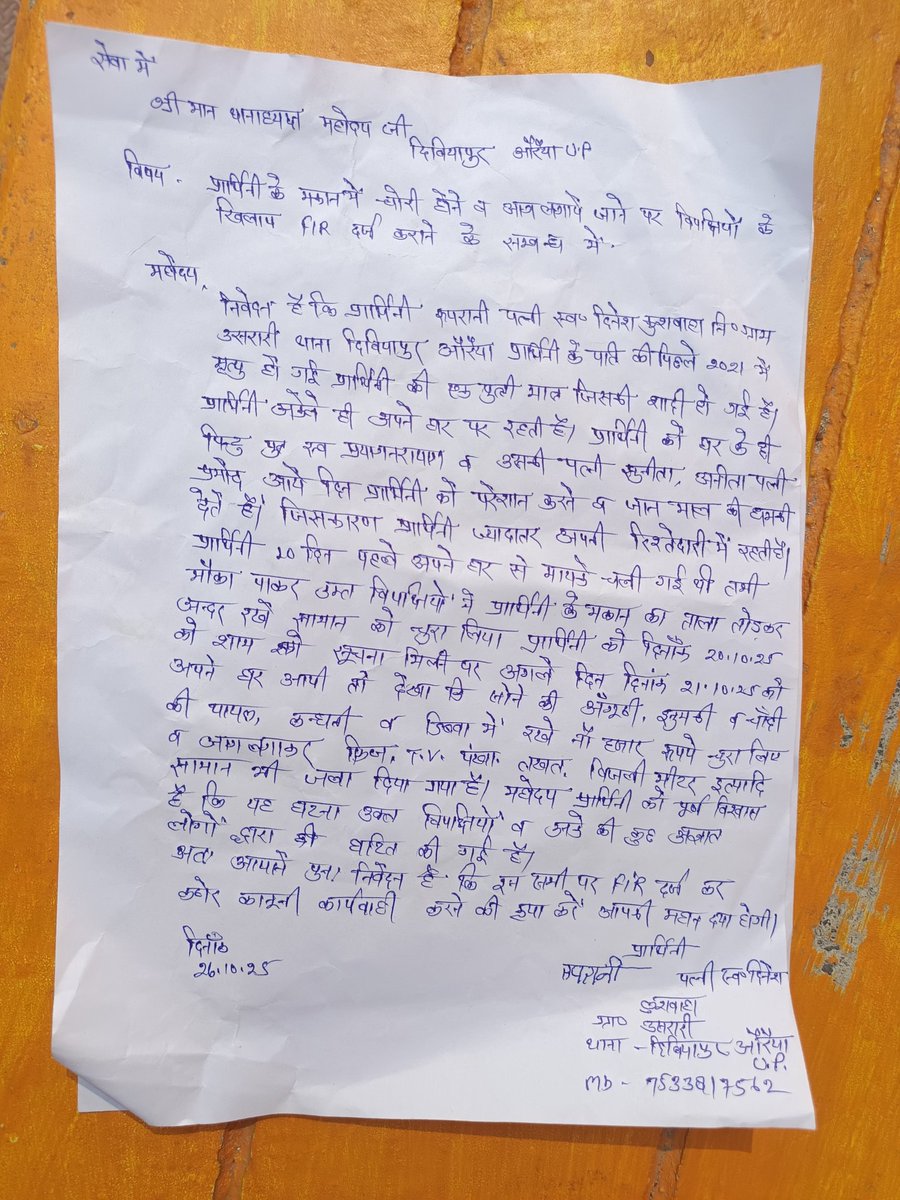 सेवा में
श्री मान थानाध्यक्ष महोदय जी
दिबियापुर औरैया U.P
विषय - प्रार्थिनी के मकान में चोरी होने व आग लगाये जाने पर विपक्षियों के
खिलाप FIR दर्ज कराने के सम्बन्ध में.
महोदय,
निवेदन है कि प्रार्थिनी रुपरानी पत्नी स्व० दिनेश कुशवाहा नि० ग्राम
उसरारी थाना दिबियापुर औरैया प्रार्थिनी के पति की पिछले 2021 में
मृत्यु हो गई प्रार्थिनी की एक पुत्री मात्र जिसकी शादी हो गई है।
प्रार्थिनी अकेले ही अपने घर पर रहती है। प्रार्थिनी को घर के ही
पिन्टू पुत्र स्व प्रयागनरायण व उसकी पत्नी सुनीता, अनीता पत्नी
प्रमोद आये दिन प्रार्थिनी को परेशान करते व जान माल की धमकी
देते हैं। जिसकारण प्रार्थिनी ज्यादातर अपनी रिश्तेदारी में रहती है।
प्रार्थिनी 10 दिन पहले अपने घर से मायके चली गई थी तभी
मौका पाकर उक्त विपक्षियों ने प्रार्थिनी के मकान का ताला तोडकर
अन्दर रखे सामान को चुरा लिया प्रार्थिनी को दिनाँक 20.10.25
को शाम को सूचना मिली पर अगले दिन दिनांक 21.10.25 को
अपने घर आयी तो देखा कि सोने की अँगूठी, झुमकी व चाँदी
की पायल, कन्धनी व डिब्बा में रखे नौ हजार रूपये चुरा लिए
व आग लगाकर फ्रिज, T.V. पंखा, तखत, बिजली मीटर इत्यादि
सामान भी जला दिया गया है। महोदय प्रार्थिनी को पूर्ण विश्वास
है कि यह घटना उक्त विपक्षियों व उनके की कुछ अज्ञात
लोगों द्वारा ही घटित की गई है।
अतः आपसे पुनः निवेदन है कि इन सभी पर FIR दर्ज कर
कठोर कानूनी कार्यवाही करने की कृपा करें आपकी महान दया होगी।
दिनाँक
26.10.25
प्रार्थिनी
रुपरानी पत्नी स्व० दिनेश
कुशवाहा
ग्रा० उसरारी
थाना - दिबियापुर औरैया
U.P.
Mb - 7533817562